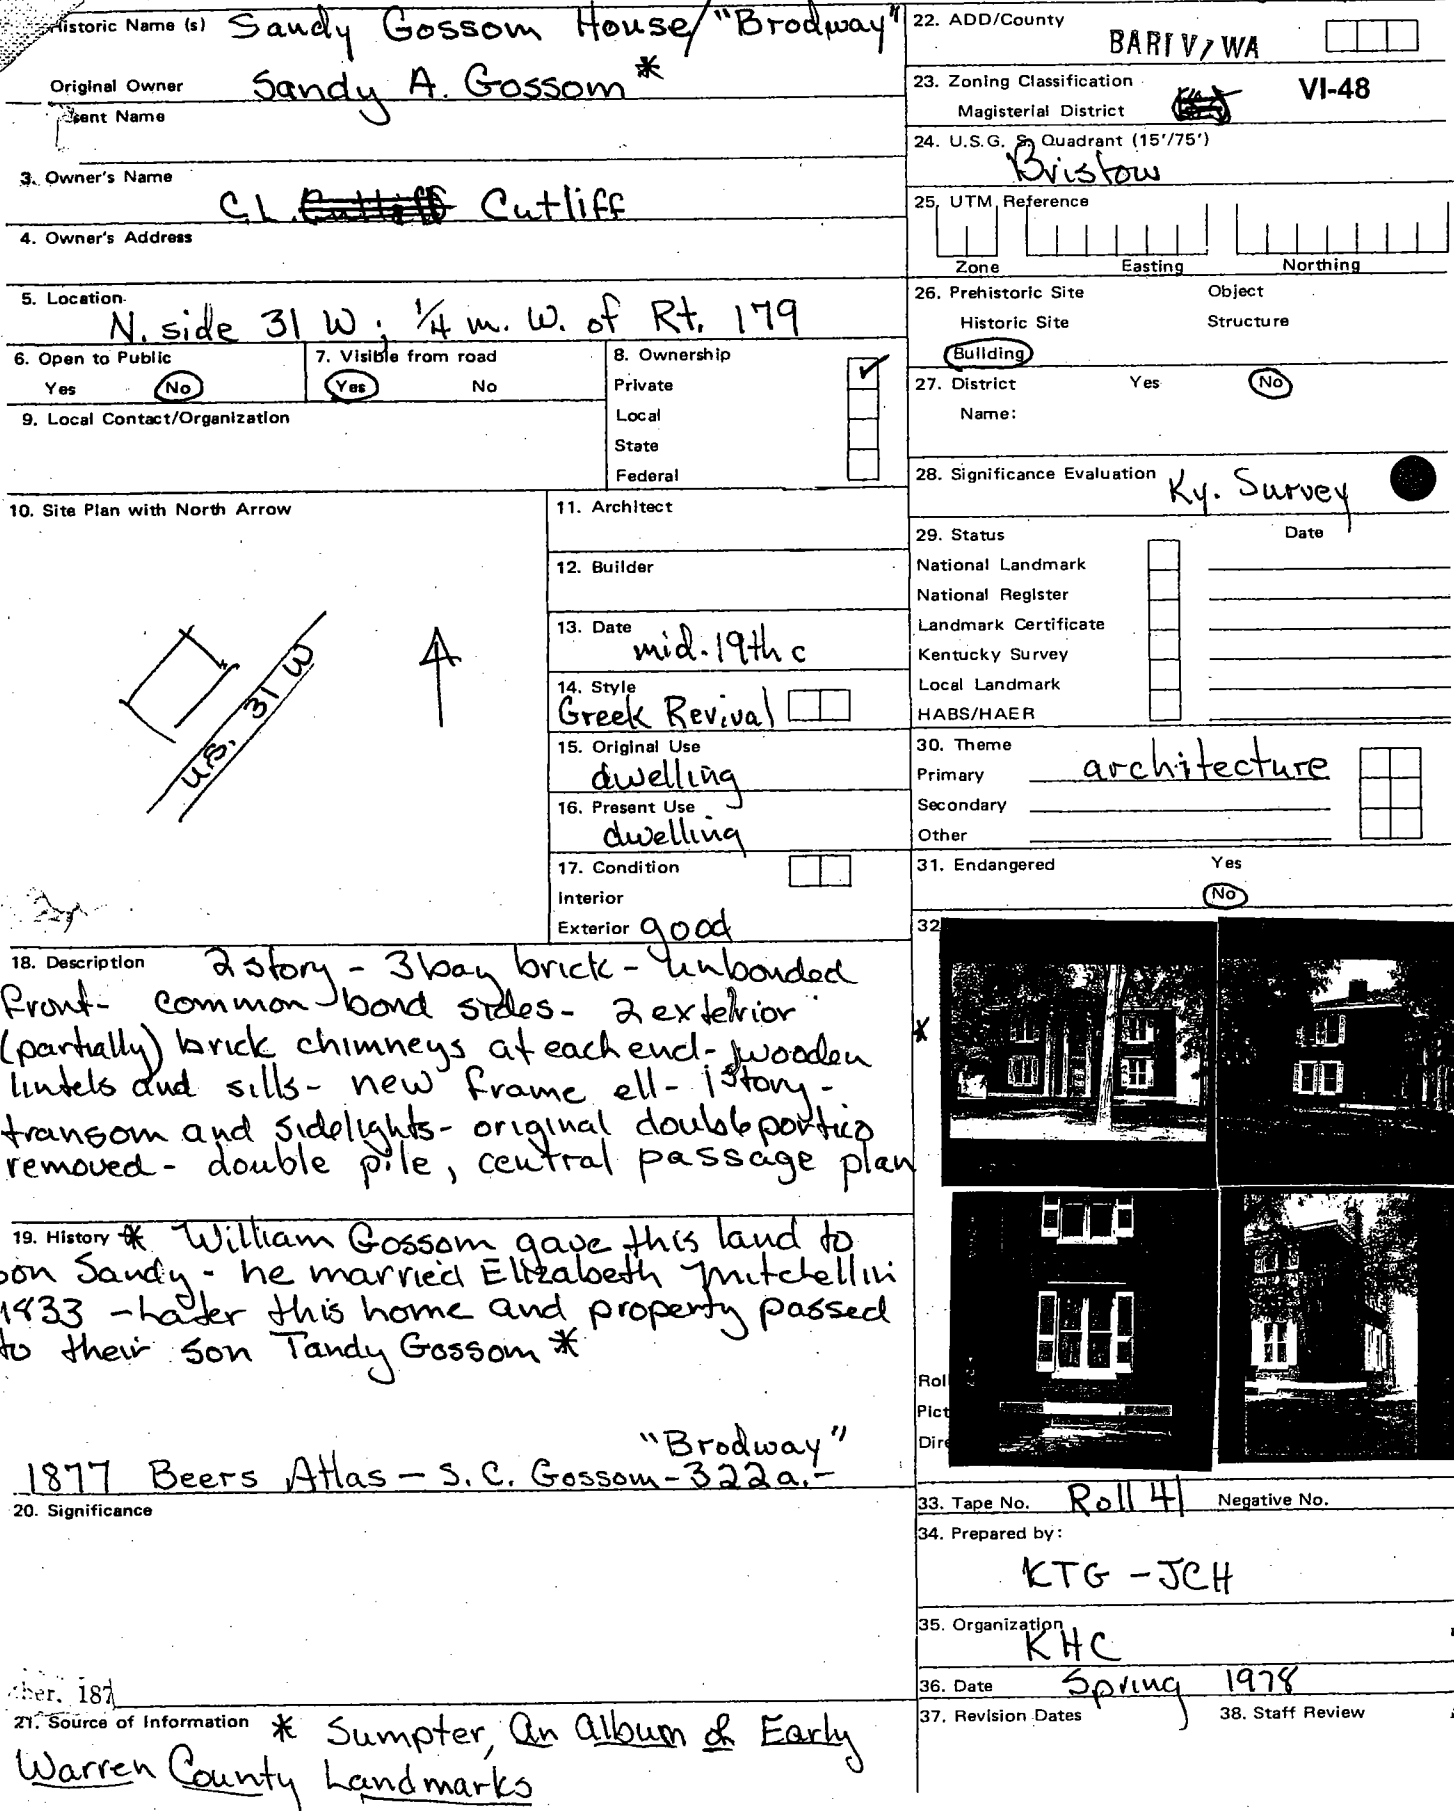 Historic Name (s) Sandy Gossom House/"Brodway"
Original Owner Sandy A. Gossom *
sent Name
3. Owner's Name
C.L. Cutliff
4. Owner's Address
5. Location
N. side 31 W; 1/4 m. W. of Rt. 179
6. Open to Public
Yes No
7. Visible from road
Yes No
8. Ownership
Private ✓
Local
State
Federal
9. Local Contact/Organization
10. Site Plan with North Arrow
U.S. 31 W
11. Architect
12. Builder
13. Date
mid-19th c
14. Style
Greek Revival
15. Original Use
dwelling
16. Present Use
dwelling
17. Condition
Interior
Exterior good
18. Description 2 story - 3 bay brick - unbonded
front - common bond sides - 2 exterior
(partially) brick chimneys at each end - wooden
lintels and sills - new frame ell - 1 story -
transom and sidelights - original double portico
removed - double pile, central passage plan
19. History * William Gossom gave this land to
son Sandy - he married Elizabeth Mitchell in
1833 - Later this home and property passed
to their son Tandy Gossom *
"Brodway"
1877 Beers Atlas - S. C. Gossom - 322a. -
20. Significance
her. 187
21. Source of Information * Sumpter, An Album of Early
Warren County Landmarks
22. ADD/County
BARIV/WA
23. Zoning Classification
VI-48
Magisterial District
24. U.S.G. S. Quadrant (15'/75')
Bristow
25. UTM Reference
Zone Easting Northing
26. Prehistoric Site Object
Historic Site Structure
Building
27. District Yes No
Name:
28. Significance Evaluation Ky. Survey
29. Status Date
National Landmark
National Register
Landmark Certificate
Kentucky Survey
Local Landmark
HABS/HAER
30. Theme
Primary architecture
Secondary
Other
31. Endangered Yes
No
32
*
Rol
Pict
Dire
33. Tape No. Roll 41 Negative No.
34. Prepared by:
KTG - JCH
35. Organization
KHC
36. Date Spring 1978
37. Revision Dates 38. Staff Review